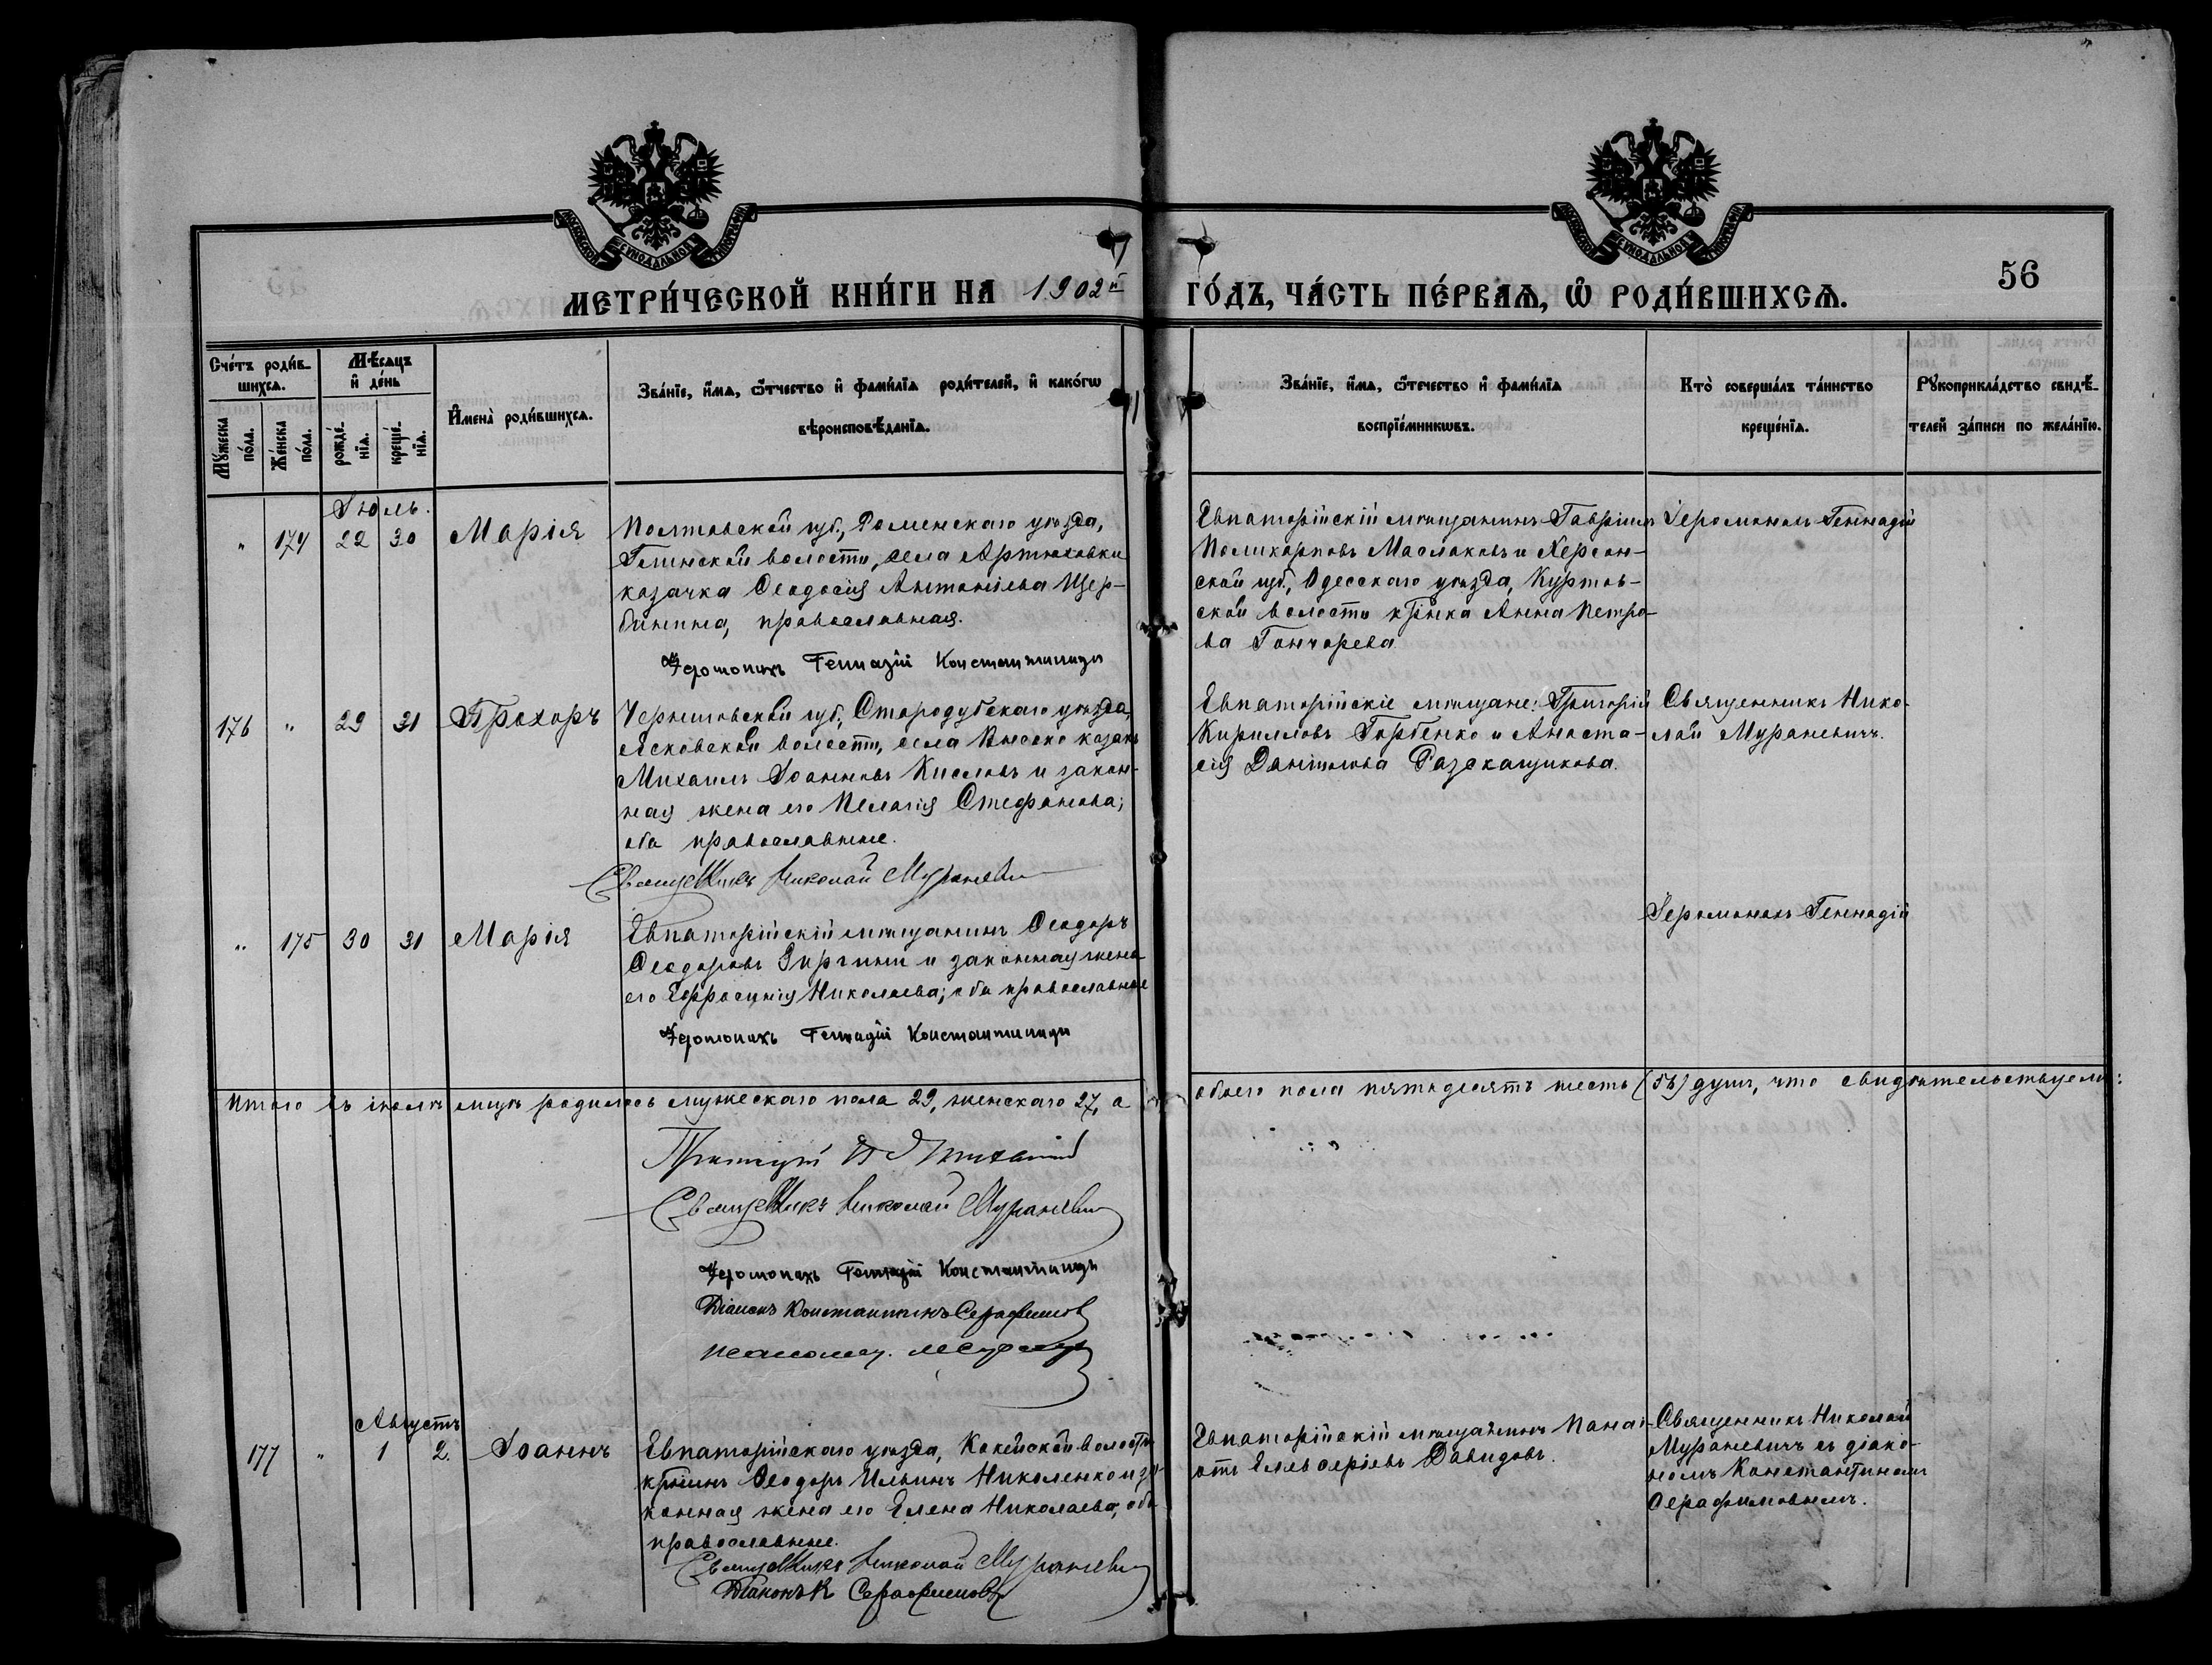 МОСКОВСКОЙ СѴНОДАЛЬНОЙ ТИПОГРАФІИ
МОСКОВСКОЙ СѴНОДАЛЬНОЙ ТИПОГРАФІИ
56
МЕТРИ́ЧЕСКОЙ КНИ́ГИ НА 1902й ГО́ДЪ, ЧА́СТЬ ПЕ́РВАѦ, Ѡ҆ РОДИ́ВШИХСѦ.
Сче́тъ роди́в-
шихсѧ.
Мѣ́сѧцъ
и҆ де́нь
Мꙋ́жеска
по́ла.
Же́нска
по́ла.
рожде́-
нїѧ.
креще́-
нїѧ.
И҆мена̀ роди́вшихсѧ.
Зва́нїе, и҆́мѧ, ѻ҆́тчество и҆ фами́лїѧ роди́телей, и҆ како́гѡ
вѣроисповѣ́данїѧ.
Зва́нїе, и҆́мѧ, ѻ҆́течество и҆ фами́лїѧ
воспрїе́мникѡвъ.
Кто̀ соверша́лъ та́инство
креще́нїѧ.
Рꙋкоприкла́дство свидѣ́-
телей за́писи по жела́нїю.
Іюль.
" 174 22 30 Марія
Полтавской губ., Роменскаго уѣзда,
Глинской волости, села Артюховки
казачка Ѳеодосія Антоніева Щер-
бинина, православная.
Іеромонахъ Геннадій Константиниди
Евпаторійскій мѣщанинъ Гавріилъ
Поликарповъ Маслаковъ и Херсон-
ской губ., Одесскаго уѣзда, Куртов-
ской волости кр҃нка Анна Петро-
ва Гончарева
Іеромонахъ Геннадій
176 " 29 31 Прохоръ
Черниговской губ., Стародубскаго уѣзда,
волости, села казакъ
Михаилъ Іоанновъ Кисловъ и закон-
ная жена его Пелагія Стефанова;
оба православные.
Священникъ Николай Мураневичъ
Евпаторійскіе мѣщане: Григорій
Кирилловъ Горбенко и Анаста-
сія Даніилова Разскащикова.
Священникъ Нико-
лай Мураневичъ.
" 175 30 31 Марія
Евпаторійскій мѣщанинъ Ѳеодоръ
Ѳеодоровъ и законная жена
его Евфросинія Николаева; оба православные
Іеромонахъ Геннадій Константиниди
Іеромонахъ Геннадій
Итого въ іюлѣ мцѣ родилось мужескаго пола 29, женскаго 27, а
обоего пола пятьдесятъ шесть (56) душъ, что свидѣтельствуемъ:
Священникъ Николай Мураневичъ
Іеромонахъ Геннадій Константиниди
Діаконъ Константинъ Серафимовъ
Августъ
177 " 1 2. Іоаннъ
Евпаторійскаго уѣзда, волости
кр҃нинъ Ѳеодоръ Ильинъ Николенко и за-
конная жена его Елена Николаева, оба
православные.
Священникъ Николай Мураневичъ
Діаконъ К Серафимовъ
Евпаторійскій мѣщанинъ Пана-
отъ Елевѳеріевъ Давидовъ.
Священникъ Николай
Мураневичъ съ діако-
номъ Константиномъ
Серафимовымъ.